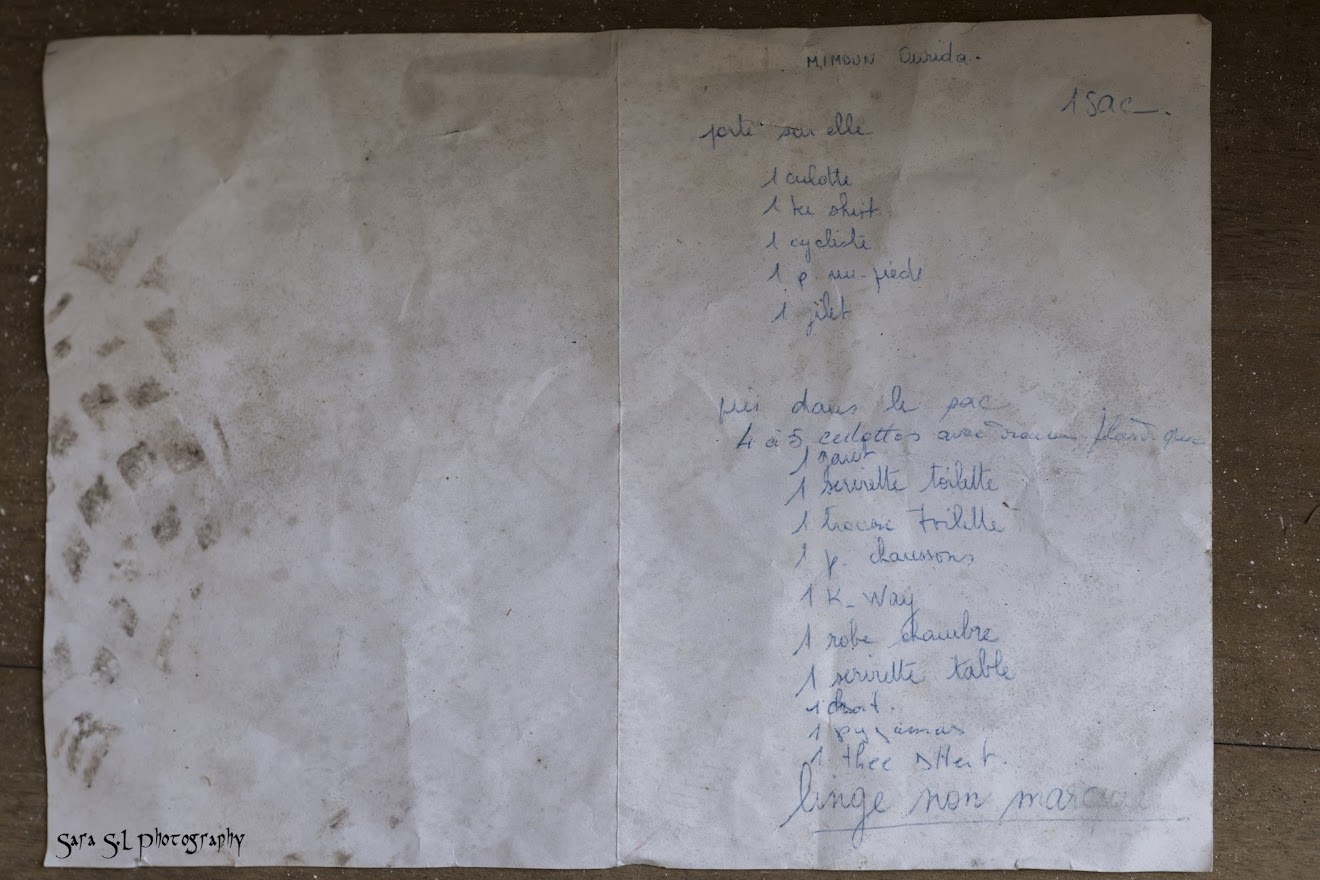 MIMOUN Ourida.
1 Sac.
porté sur elle
1 culotte
1 tee shirt
1 cycliste
1 p. nu-pieds
1 gilet
puis dans le sac
4 à 5 culottes avec
1 gant
1 serviette toilette
1 trousse toilette
1 p. chaussons
1 K-Way
1 robe chambre
1 serviette table
1
1 pyjamas
1 thee sHert.
linge non marqué
Sara S.L Photography